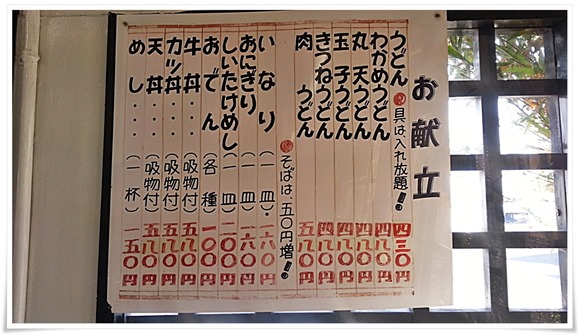 お献立
うどん 四三〇円
具は入れ放題!
わかめうどん 四八〇円
丸天うどん 四八〇円
玉子うどん 四八〇円
きつねうどん 四八〇円
肉うどん 五八〇円
そばは、五〇円増!
いなり(一皿)・一六〇円
おにぎり(一皿)一六〇円
しいたけめし(一皿)
おでん(各種)一〇〇円
牛丼・・(吸物付)五八〇円
カツ丼・・(吸物付)五八〇円
天丼・・(吸物付)五八〇円
めし・・・(一杯)一五〇円